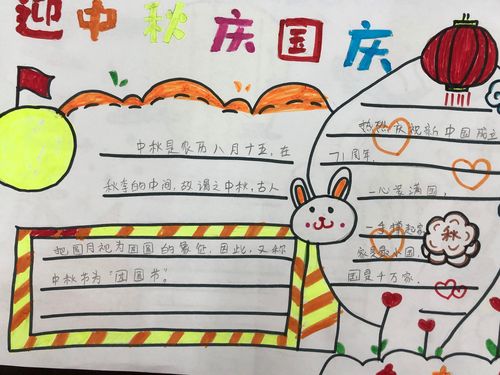 迎中秋庆国庆
中秋是农历八月十五,在
秋季的中间,故谓之中秋,古人
把圆月视为团圆的象征,因此,又称
中秋节为"团圆节"。
热烈庆祝新中国成立
71周年
一心装满国,
一手撑起家
家是最小国,
国是千万家.
秋